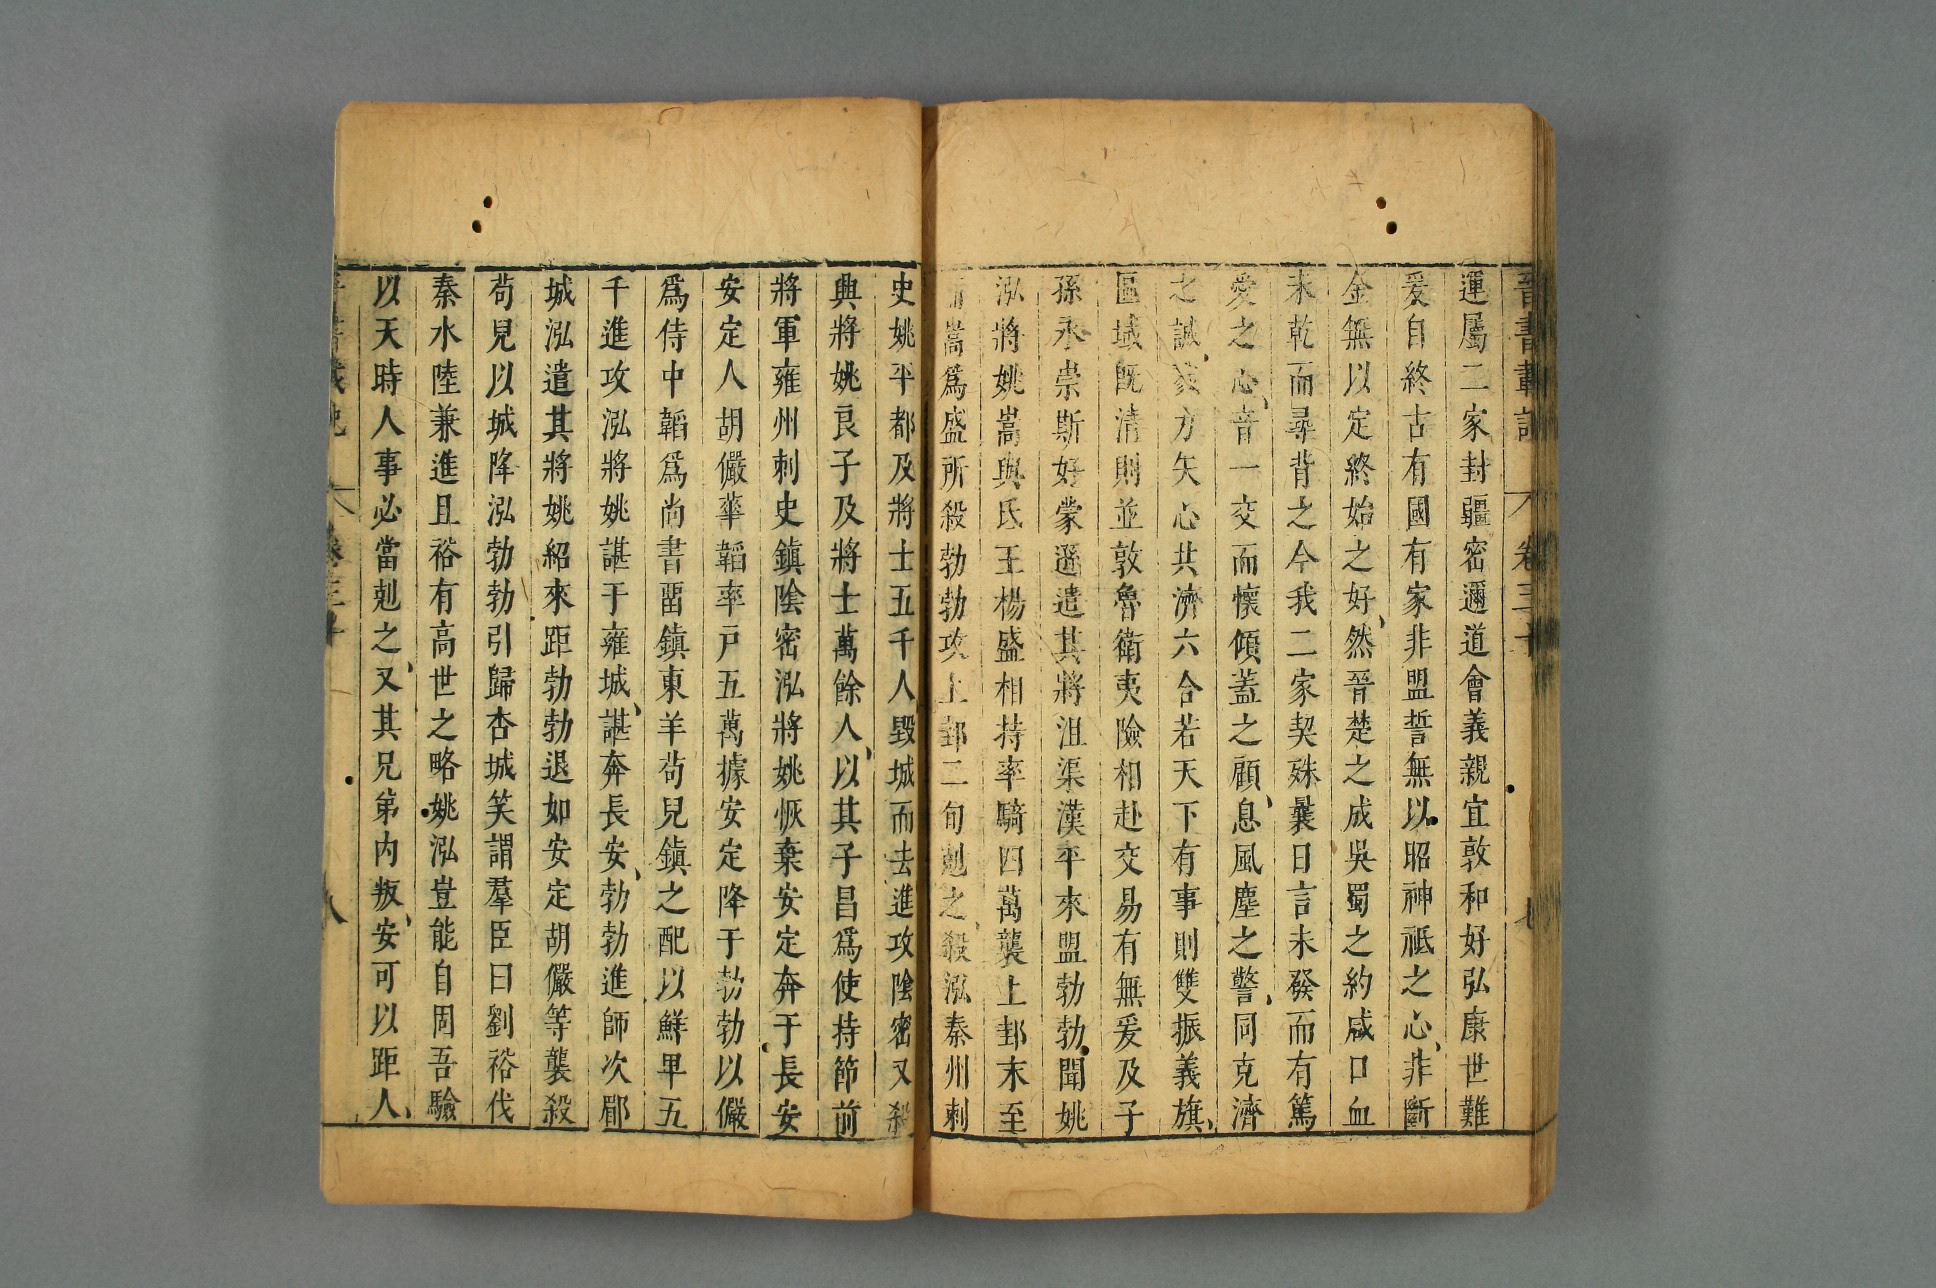 晉書載記 卷三十 七
運屬二家封疆密邇道會義親宜敦和好弘康世難
爰自終古有國有家非盟誓無以昭神祗之心非斷
金無以定終始之好然晉楚之成吳蜀之約咸口血
未乾而尋背之今我二家契殊曩日言未發而有篤
愛之心音一交而懷傾蓋之顧息風塵之警同克濟
之誠戮力矢心共濟六合若天下有事則雙振義旗
區域旣清則並敦魯衛夷險相赴交易有無爰及子
孫永崇斯好蒙遜遣其將沮渠漢平來盟勃勃聞姚
泓將姚嵩與氐王楊盛相持率騎四萬襲上邽未至
嵩爲盛所殺勃勃攻上邽二旬剋之殺泓秦州刺
史姚平都及將士五千人毀城而去進攻陰密又殺
興將姚良子及將士萬餘人以其子昌爲使持節前
將軍雍州刺史鎮陰密泓將姚恢棄安定奔于長安
安定人胡儼華韜率戸五萬據安定降于勃勃以儼
爲侍中韜爲尚書畱鎮東羊苟兒鎮之配以鮮卑五
千進攻泓將姚諶于雍城諶奔長安勃勃進師次郿
城泓遣其將姚紹來距勃勃退如安定胡儼等襲殺
苟兒以城降泓勃勃引歸杏城笑謂羣臣曰劉裕伐
秦水陸兼進且裕有高世之略姚泓豈能自固吾驗
以天時人事必當剋之又其兄弟內叛安可以距人
卷三十 八